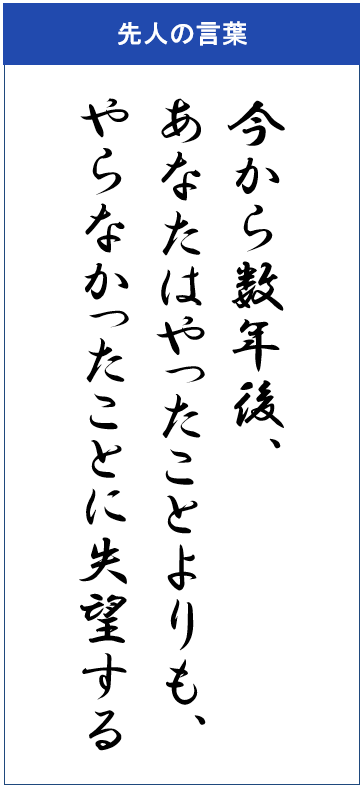 先人の言葉
今から数年後、
あなたはやったことよりも、
やらなかったことに失望する